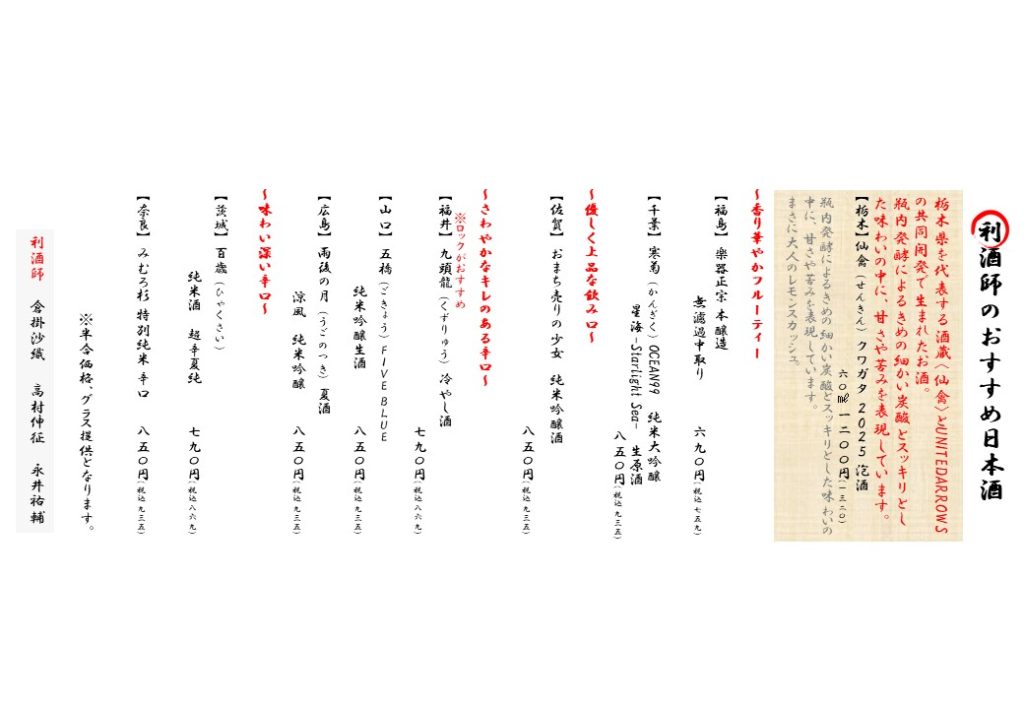 利酒師のおすすめ日本酒
栃木県を代表する酒蔵〈仙禽〉とUNITEDARROWS
の共同開発で生まれたお酒。
瓶内発酵によるきめの細かい炭酸とスッキリとし
た味わいの中に、甘さや苦みを表現しています。
【栃木】仙禽（せんきん）クワガタ 2025 泡酒
六〇㎖ 一二〇〇円(一三二〇)
瓶内発酵によるきめの細かい炭酸とスッキリとした味わいの
中に、甘さや苦みを表現しています。
まさに大人のレモンスカッシュ。
～香り華やかフルーティー
【福島】 楽器正宗 本醸造
無濾過中取り 六九〇円(税込七五九)
【千葉】 寒菊（かんぎく）OCEAN99 純米大吟醸
星海 -Starlight Sea- 生原酒
八五〇円(税込九三五)
～優しく上品な飲み口～
【佐賀】 おまち売りの少女 純米吟醸酒
八五〇円(税込九三五)
～さわやかなキレのある辛口～
※ロックがおすすめ
【福井】 九頭龍（くずりゅう）冷やし酒
七九〇円(税込八六九)
【山口】 五橋（ごきょう）FIVE BLUE
純米吟醸生酒 八五〇円(税込九三五)
【広島】 雨後の月（うごのつき）夏酒
涼風 純米吟醸 八五〇円(税込九三五)
～味わい深い辛口～
【茨城】 百歳（ひゃくさい）
純米酒 超辛夏純 七九〇円(税込八六九)
【奈良】 みむろ杉 特別純米 辛口 八五〇円(税込九三五)
※半合価格、グラス提供となります。
利酒師 倉掛沙織 高村伸征 永井祐輔